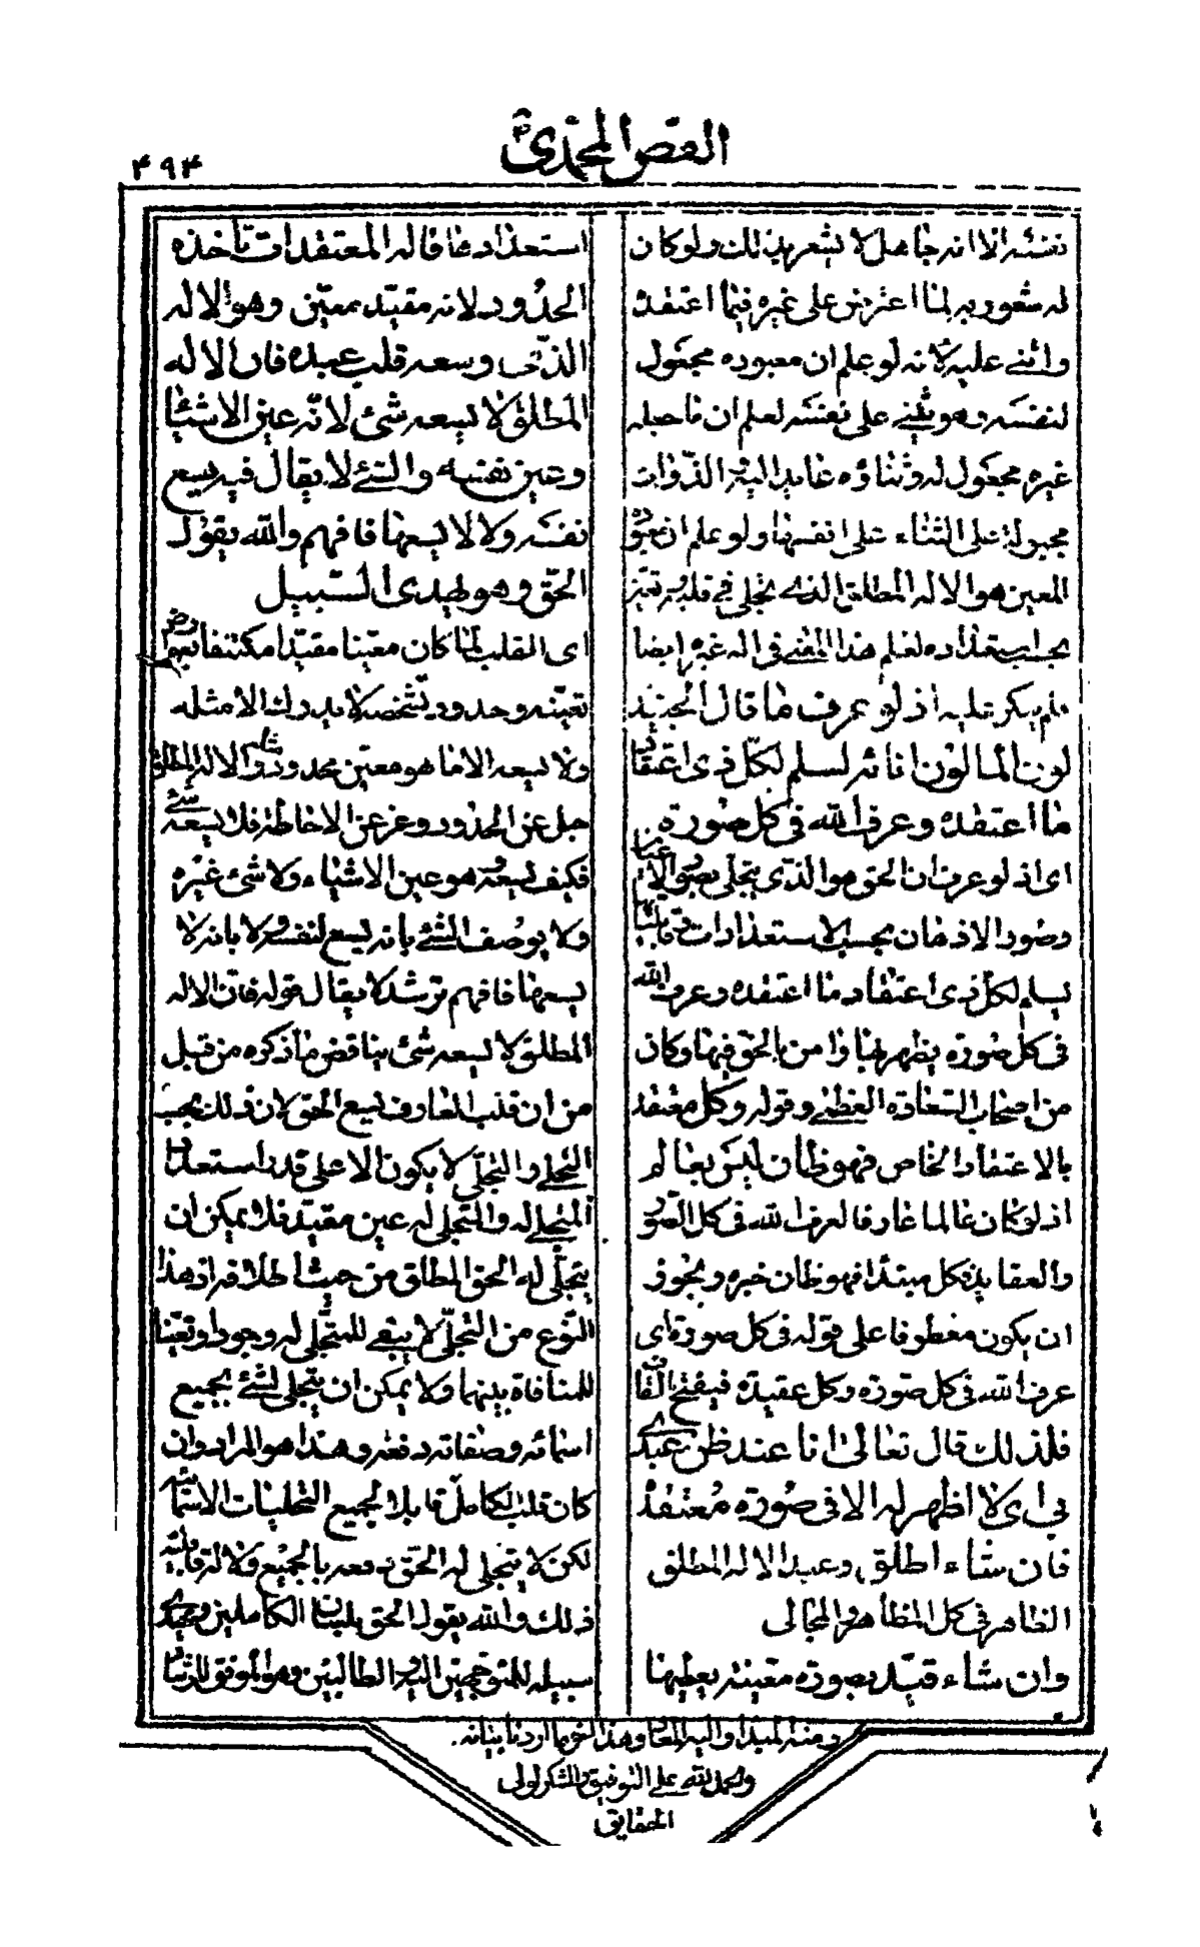 الفص المحمدى
۴۹۴
نفسه الا انه جاهل لا يشعر بذلك ولو كان
له شعور به لما اعترض على غيره فيما اعتقده
واثنى عليه لانه لو علم ان معبوده مجعول
لنفسه وهو يثنى على نفسه لعلم ان ما جعله
غيره مجعول له وثناؤه عايد اليه الذوات
مجبولة على الثناء على انفسها ولو علم ان معبوده
المعين هو الاله المطلق الذى تجلى فى قلبه وتعين
بحسب استعداده لعلم هذا المعنى فى اله غيره ايضا
فلم ينكر عليه اذ لو عرف ما قال الجنيد
لون الماء لون انائه لسلم لكل ذى اعتقاد
ما اعتقده وعرف الله فى كل صورة
اى اذ لو عرف ان الحق هو الذى يتجلى بصور الاعيان
وصور الاذهان بحسب الاستعدادات وقابلياتها
يسلم لكل ذى اعتقاد ما اعتقده وعرف الله
فى كل صورة يظهر بها وامن بالحق فيها وكان
من اصحاب السعادة العظمى وقوله وكل معتقد
بالاعتقاد الخاص فهو ظان ليس بعالم
اذ لو كان عالما عارفا لعرف الله فى كل الصور
والعقايد كل مبتدا فهو ظان خبره ويجوز
ان يكون معطوفا على قوله فى كل صورة اى
عرف الله فى كل صورة وكل عقيدة فيفتح القاف
فلذلك قال تعالى انا عند ظن عبدى
بى اى لا اظهر له الا فى صورة معتقده
فان شاء اطلق وعبد الاله المطلق
الظاهر فى كل المظاهر والمجالى
وان شاء قيد بصورة معينة يعطيها
استعداده فاله المعتقدات تأخذه
الحدود لانه مقيد معين وهو الاله
الذى وسعه قلب عبده فان الاله
المطلق لا يسعه شئ لانه عين الاشياء
وعين نفسه والشئ لا يقال فيه يسع
نفسه ولا لا يسعها فافهم والله يقول
الحق وهو يهدى السبيل
اى القلب لما كان معينا مقيدا مكتنفا
تعينه وحدود تشخصه لا يدرك الا مثله
ولا يسعه الا ما هو معين محدود والاله المطلق
جل عن الحدود وعز عن الاحاطة فلا يسعه شئ
فكيف يسعه وهو عين الاشياء ولا شئ غيره
ولا يوصف الشئ بانه يسع لنفسه ولا بانه لا
يسعها فافهم ترشد لا يقال قوله فان الاله
المطلق لا يسعه شئ يناقض ما ذكره من قبل
من ان قلب العارف يسع الحق لان ذلك بحسب
التجلى والتجلى لا يكون الا على قدر استعداد
المتجلى له والمتجلى له عين مقيد فلا يمكن ان
يتجلى له الحق المطلق من حيث اطلاقه اذ هذا
النوع من التجلى لا يبقى للمتجلى له وجودا وتعينا
للمنافاة بينهما ولا يمكن ان يتجلى لشئ بجميع
اسمائه وصفاته دفعة وهذا هو المراد وان
كان قلب الكامل قابلا لجميع التجليات الاسمائية
لكن لا يتجلى له الحق دفعة بالجميع ولا له قابلية
ذلك والله يقول الحق بلسان الكاملين ويهدى
سبيله للمتوجهين اليه الطالبين وهو الموفق للرشاد
ومنه المبدا واليه المعاد وهذا اخر ما اردنا بيانه.
والحمد لله على التوفيق والشكر لولى
الحقايق